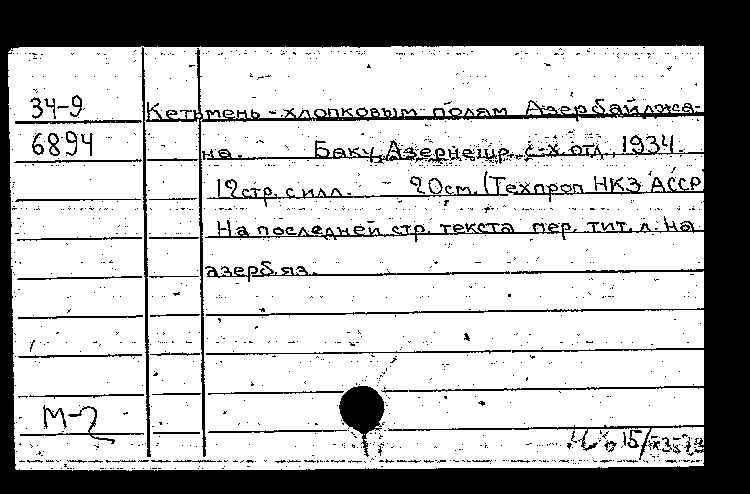 34-9
Кетьмень - хлопковым полям Азербайджа-
6894
на. Баку, Азернешр. с-х. отд., 1934.
12 стр. с илл. - 20 см. (Техпроп НКЗ АССР)
На последней стр. текста пер. тит. л. на
азерб. яз.
М-2